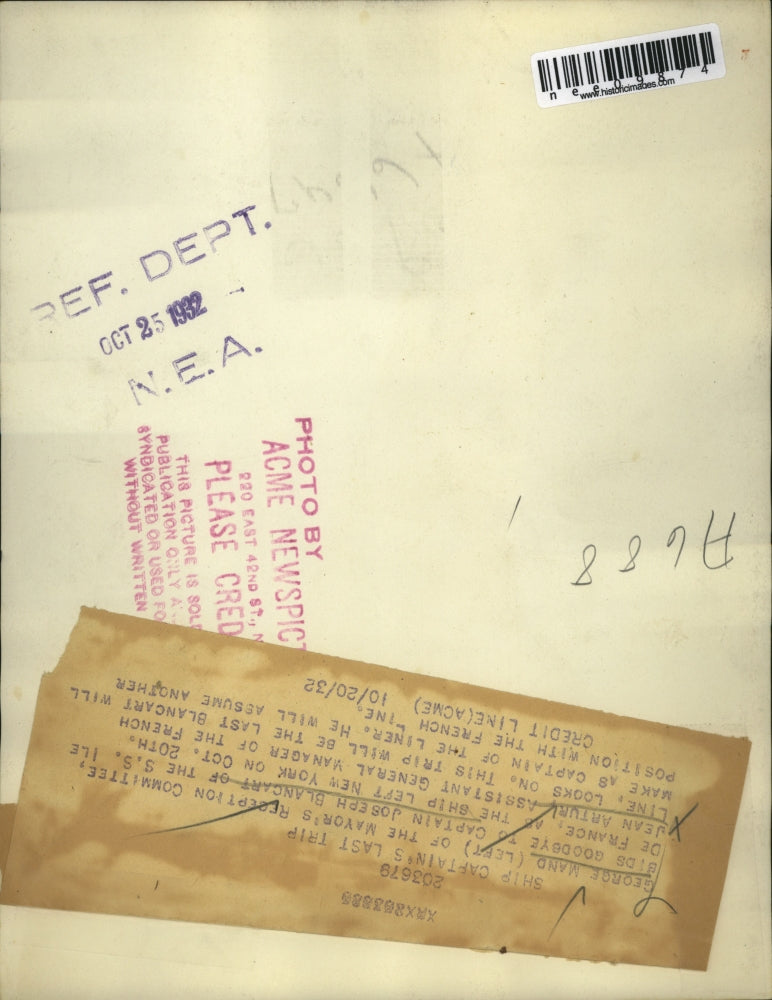 nee09874
www.historicimages.com
REF. DEPT.
OCT 25 1932
N.E.A.
PHOTO BY
ACME NEWSPICT
220 EAST 42ND ST., N
PLEASE CRED
THIS PICTURE IS SOL
PUBLICATION ONLY A
SYNDICATED OR USED FO
WITHOUT WRITTEN
A688
203679
SHIP CAPTAIN'S LAST TRIP
GEORGE MAND (LEFT) OF THE MAYOR'S RECEPTION COMMITTEE,
BIDS GOODBYE TO CAPTAIN JOSEPH BLANCART OF THE S.S. ILE
DE FRANCE, AS THE SHIP LEFT NEW YORK ON OCT. 20TH.
JEAN ARTUR, ASSISTANT GENERAL MANAGER OF THE FRENCH
LINE, LOOKS ON. THIS TRIP WILL BE THE LAST BLANCART WILL
MAKE AS CAPTAIN OF THE LINER. HE WILL ASSUME ANOTHER
POSITION WITH THE FRENCH LINE.
CREDIT LINE(ACME) 10/20/32